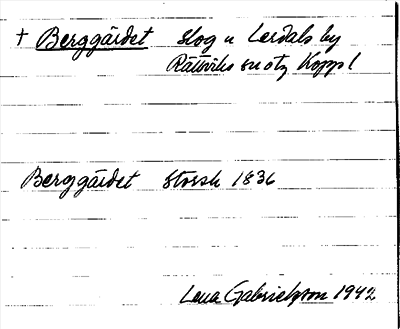 † Berggärdet skog u Lerdals by
Rättviks sn otg Koppl
Berggärdet storsk 1836
Lena Gabrielsson 1942